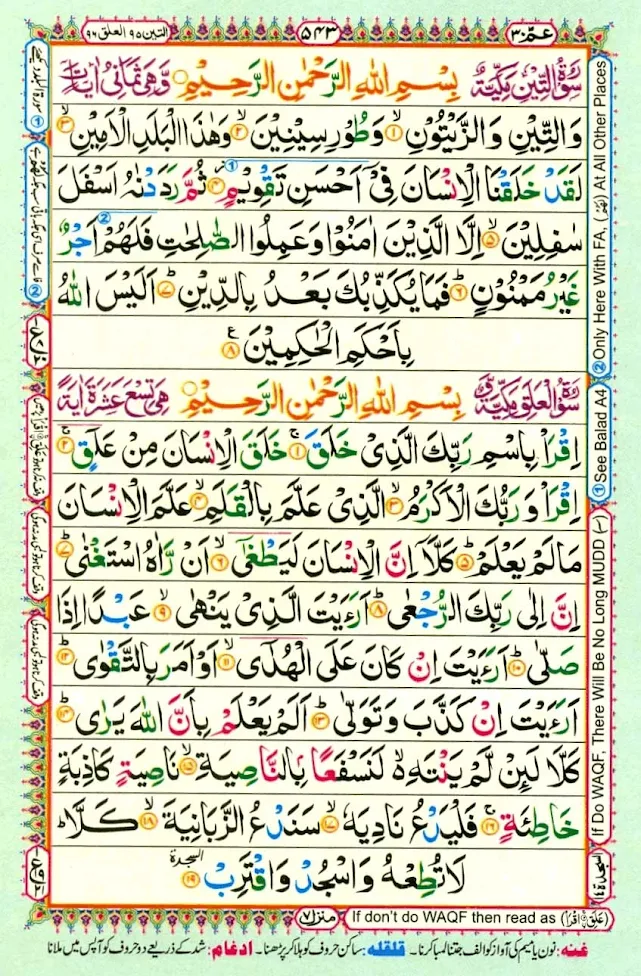 التين ٩٥ العلق ٩٦
٥٤٣
عمّ ٣٠
سُوْرَةُ التِّيْنِ مَكِّيَّةٌ بِسْمِ اللهِ الرَّحْمٰنِ الرَّحِيْمِ وَّهِىَ ثَمَانِىْ اٰيَاتٍ
وَالتِّيْنِ وَالزَّيْتُوْنِ ۙ﴿١﴾ وَطُوْرِ سِيْنِيْنَ ۙ﴿٢﴾ وَهٰذَا الْبَلَدِ الْاَمِيْنِ ۙ﴿٣﴾
لَقَدْ خَلَقْنَا الْاِنْسَانَ فِىْۤ اَحْسَنِ تَقْوِيْمٍ ۫﴿٤﴾ ثُمَّ رَدَدْنٰهُ اَسْفَلَ
سٰفِلِيْنَ ۙ﴿٥﴾ اِلَّا الَّذِيْنَ اٰمَنُوْا وَعَمِلُوا الصّٰلِحٰتِ فَلَهُمْ اَجْرٌ
غَيْرُ مَمْنُوْنٍ ؕ﴿٦﴾ فَمَا يُكَذِّبُكَ بَعْدُ بِالدِّيْنِ ؕ﴿٧﴾ اَلَيْسَ اللهُ
بِاَحْكَمِ الْحٰكِمِيْنَ ﴿٨﴾ ع
سُوْرَةُ الْعَلَقِ مَكِّيَّةٌ بِسْمِ اللهِ الرَّحْمٰنِ الرَّحِيْمِ هِىَ تِسْعَ عَشْرَةَ اٰيَةً
اِقْرَاْ بِاسْمِ رَبِّكَ الَّذِىْ خَلَقَ ۚ﴿١﴾ خَلَقَ الْاِنْسَانَ مِنْ عَلَقٍ ۚ﴿٢﴾
اِقْرَاْ وَرَبُّكَ الْاَكْرَمُ ۙ﴿٣﴾ الَّذِىْ عَلَّمَ بِالْقَلَمِ ۙ﴿٤﴾ عَلَّمَ الْاِنْسَانَ
مَا لَمْ يَعْلَمْ ؕ﴿٥﴾ كَلَّاۤ اِنَّ الْاِنْسَانَ لَيَطْغٰٓى ۙ﴿٦﴾ اَنْ رَّاٰهُ اسْتَغْنٰى ؕ﴿٧﴾
اِنَّ اِلٰى رَبِّكَ الرُّجْعٰى ؕ﴿٨﴾ اَرَءَيْتَ الَّذِىْ يَنْهٰى ۙ﴿٩﴾ عَبْدًا اِذَا
صَلّٰى ؕ﴿١٠﴾ اَرَءَيْتَ اِنْ كَانَ عَلَى الْهُدٰٓى ۙ﴿١١﴾ اَوْ اَمَرَ بِالتَّقْوٰى ؕ﴿١٢﴾
اَرَءَيْتَ اِنْ كَذَّبَ وَتَوَلّٰى ؕ﴿١٣﴾ اَلَمْ يَعْلَمْ بِاَنَّ اللهَ يَرٰى ؕ﴿١٤﴾
كَلَّا لَئِنْ لَّمْ يَنْتَهِ ۙ لَنَسْفَعًۢا بِالنَّاصِيَةِ ۙ﴿١٥﴾ نَاصِيَةٍ كَاذِبَةٍ
خَاطِئَةٍ ۚ﴿١٦﴾ فَلْيَدْعُ نَادِيَهٗ ۙ﴿١٧﴾ سَنَدْعُ الزَّبَانِيَةَ ۙ﴿١٨﴾ كَلَّا ؕ
لَا تُطِعْهُ وَاسْجُدْ وَاقْتَرِبْ ﴿١٩﴾ السجدة
② Only Here With FA, (فَلَهُمْ) At All Other Places
① See Balad A4
If Do WAQF, There Will Be No Long MUDD (~)
السجدة ١٤
منزل ٧
If don't do WAQF then read as (عَلَقِ نِ اقْرَاْ)
غنه: نون یا میم کی آواز کو الف جتنا لمبا کرنا۔ قلقله: ساکن حروف کو ہلا کر پڑھنا۔ ادغام: شد کے ذریعے دو حروف کو آپس میں ملانا